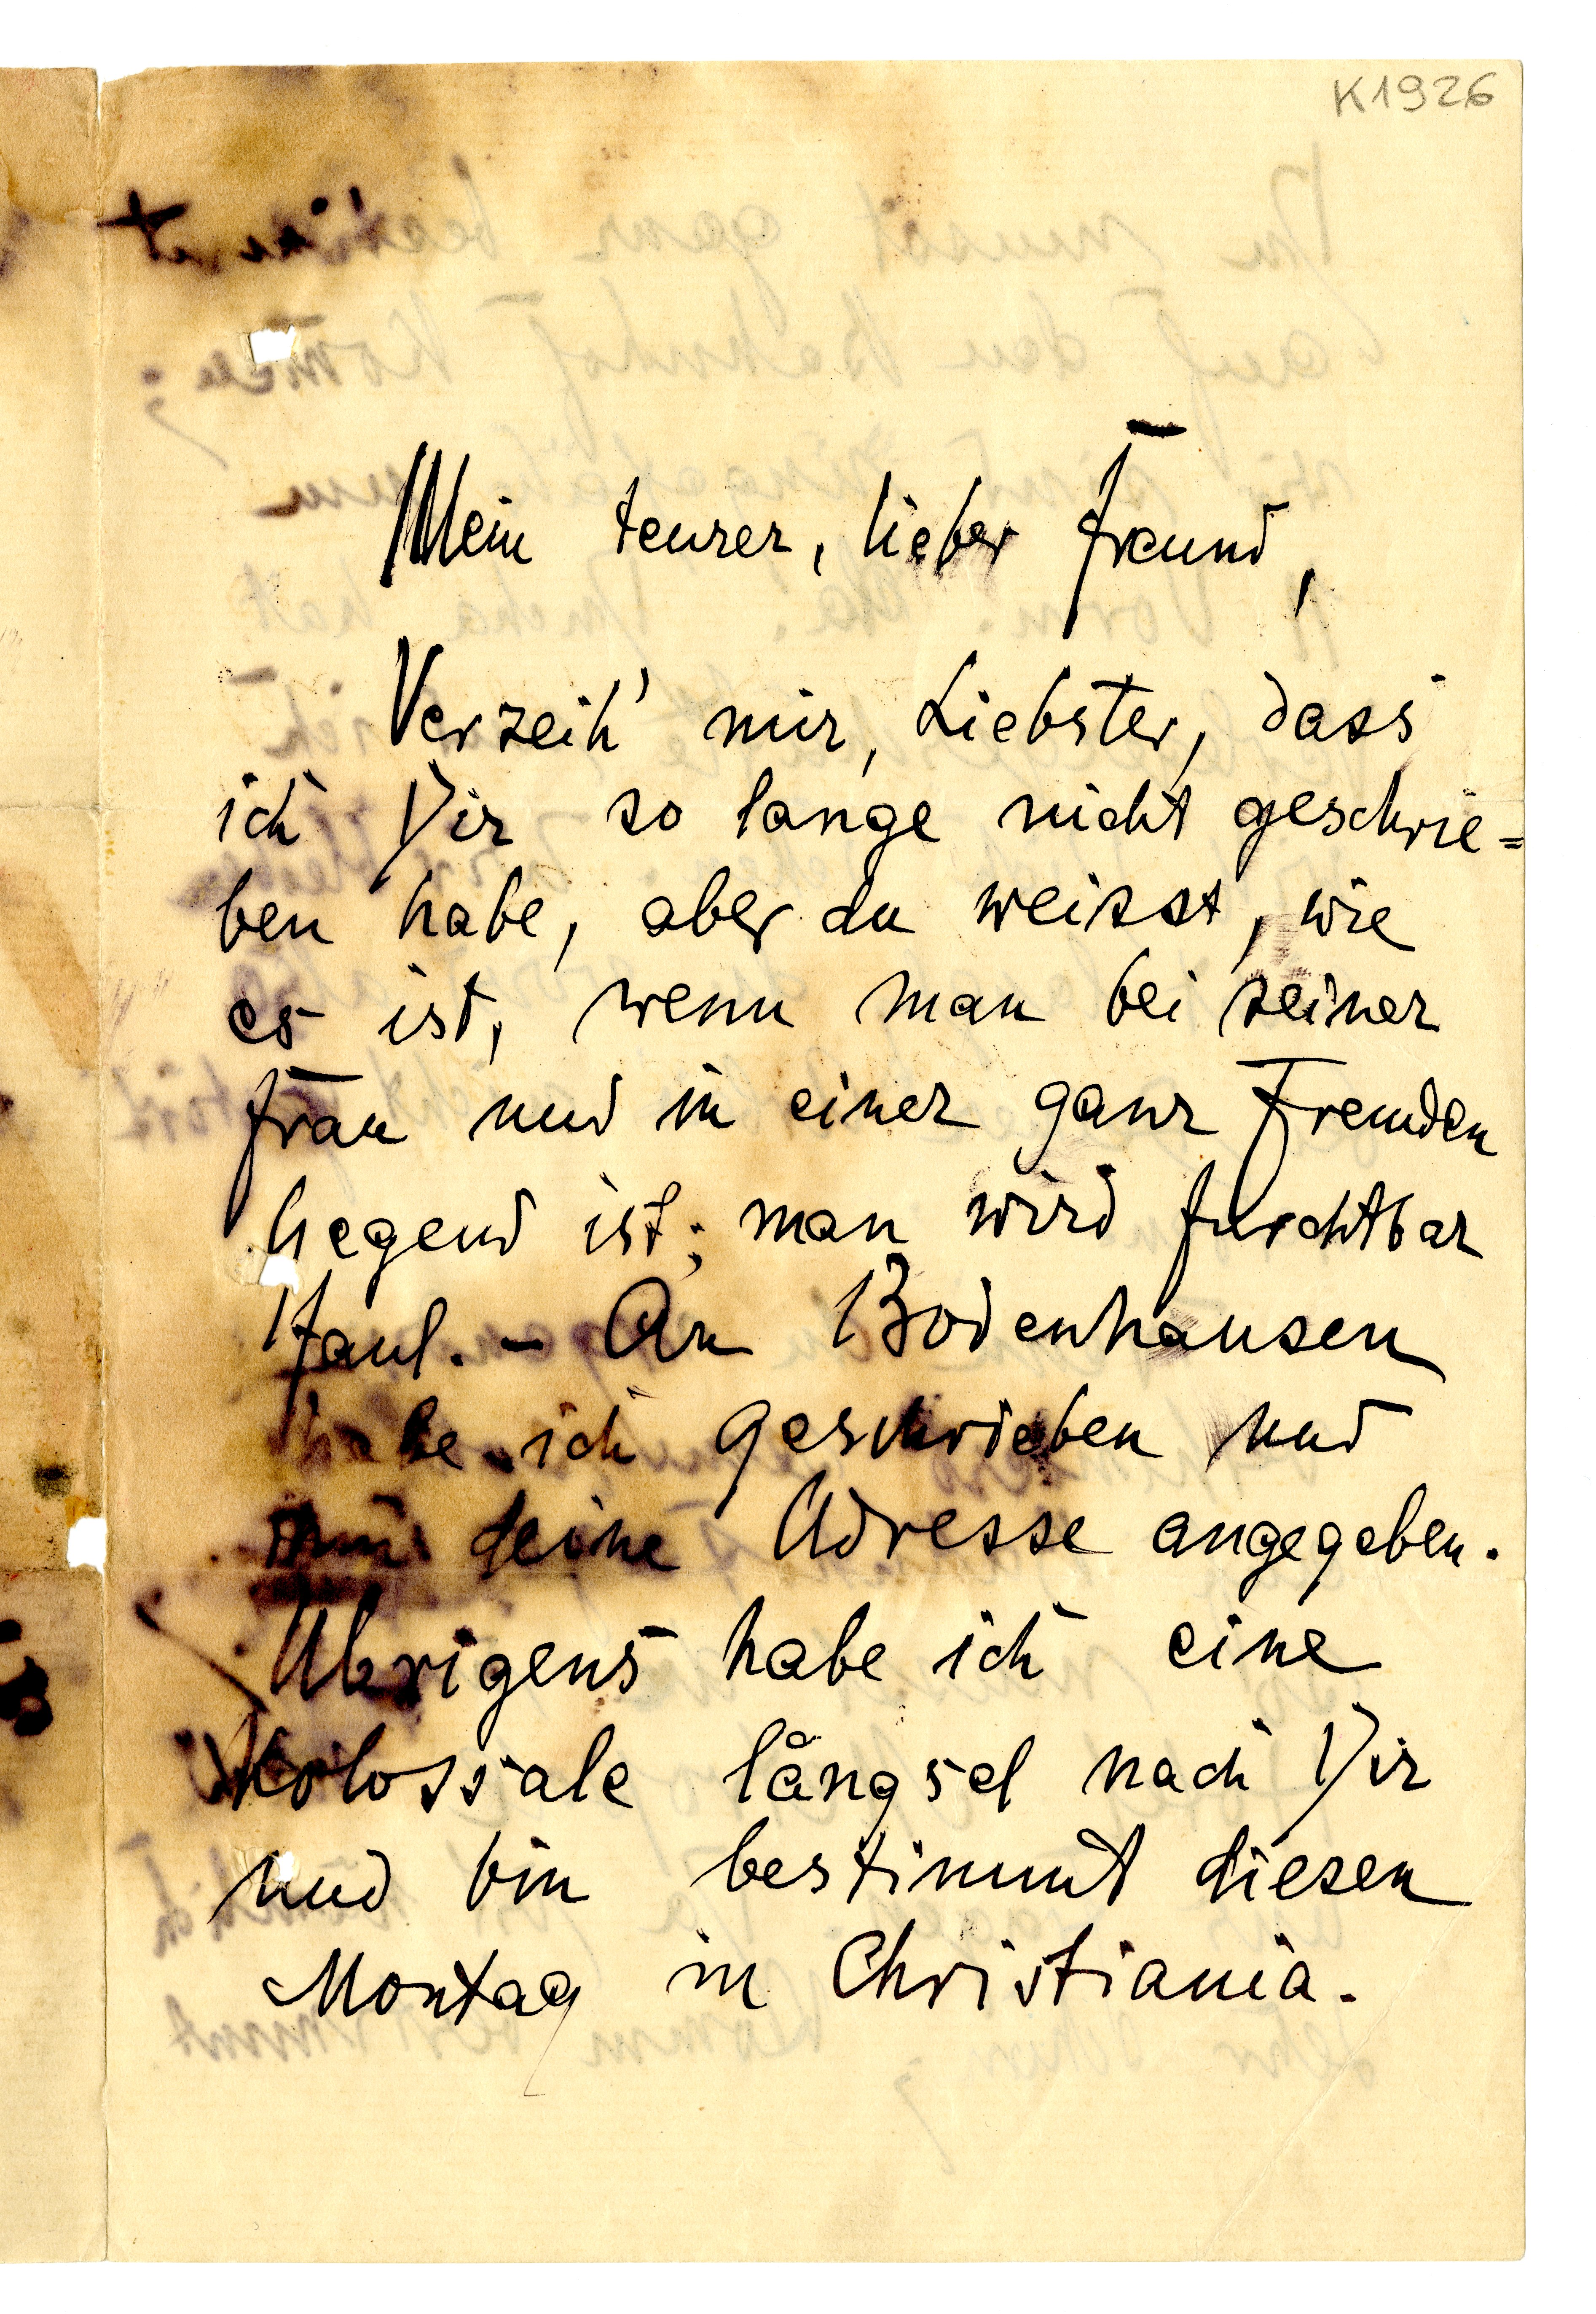 K1926
Mein teurer, lieber Freund,
Verzeih' mir, Liebster, dass
ich Dir so lange nicht geschrie=
ben habe, aber du weisst, wie
es ist, wenn man bei seiner
Frau und in einer ganz Fremden
Gegend ist; man wird furchtbar
faul. – An Bodenhausen
habe ich geschrieben und
ihm deine Adresse angegeben.
Übrigens habe ich eine
Kolossale längsel nach Dir
und bin bestimmt diesen
Montag in Christiania.